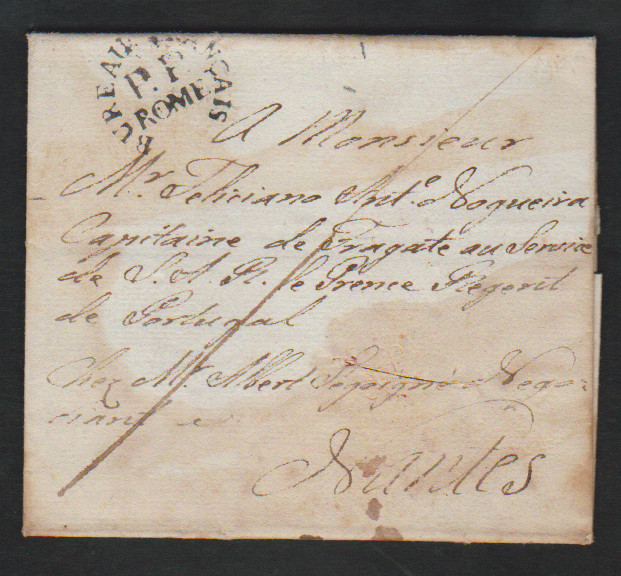 BUREAU FRANÇAIS
P. P.
ROME
A Monsieur
Mr. Feliciano Ant.º Nogueira
Capitaine de Fragate au Service
de S. A. R. le Prence Regent
de Portugal
Chez Mr. Albert Nego-
ciant
Nantes